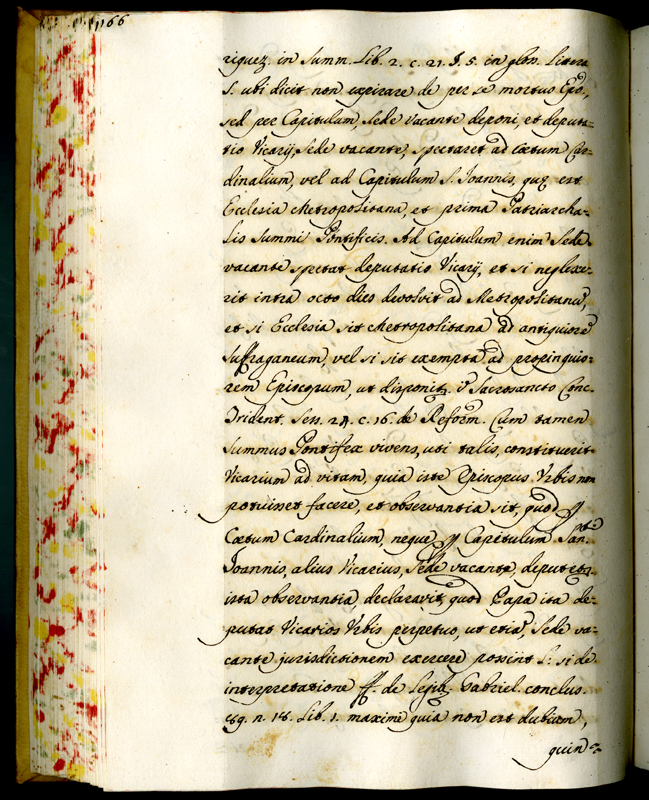 1166
riguez. in Summ. Lib. 2. c. 21. §. 5. in glos. Littera
S. ubi dicit non expirare de per se mortuo Epõ,
sed per Capitulum, Sede Vacante deponi, et deputa-
tio Vicarij, Sede vacante, spectaret ad Cœtum Car-
dinalium, vel ad Capitulum S. Joannis, quę est
Ecclesia Metropolitana, et prima Patriarcha-
lis Summi Pontificis. Ad Capitulum enim Sede
vacante spectat deputatio Vicarij, et si neglexe-
rit intra octo dies devolvit ad Metropolitanũ,
et si Ecclesia sit Metropolitana ad antiquiorẽ
Suffraganeum, vel si sit exempta ad propinquio-
rem Episcopum, ut disponit. Sacrosancto Conc.
Trident. Sess. 24. c. 16. de Reform. Cum tamen
Summus Pontifex vivens, uti talis, constituerit
Vicarium ad vitam, quia iste Episcopus Urbis non
potuisset facere, et observantia sit, quod ꝑ
Cœtum Cardinalium, neque ꝑ Capitulum Sanᵗⁱ
Joannis, alius Vicarius, Sede vacante, deputetur
ista observantia, declaravit, quod Papa ita de-
putat Vicarios Urbis perpetuo, ut etiã, Sede va-
cante jurisdictionem exercere possint L. si de
interpretatione ff. de Legib. Gabriel. conclus.
89. n. 18. Lib. 1. maxime quia non est dubium,
quin